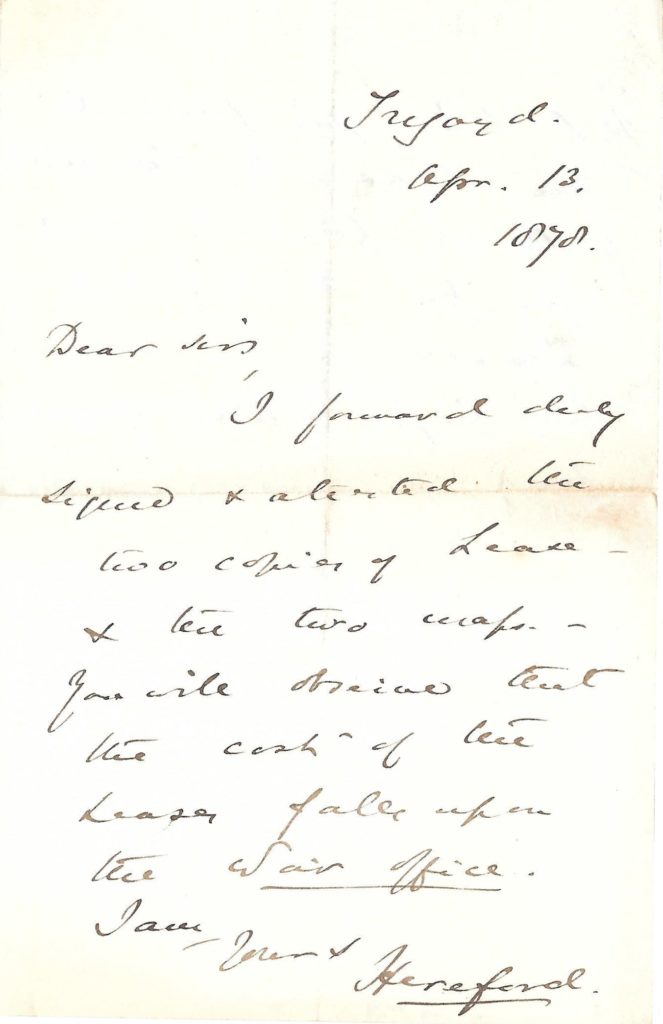 Tregoyd.
Apr. 13.
1878.
Dear Sirs,
I forward duly
signed & attested the
two copies of Lease -
& the two maps. -
You will observe that
the cost of the
Leases falls upon
the War Office.
I am
Yours
Hereford.